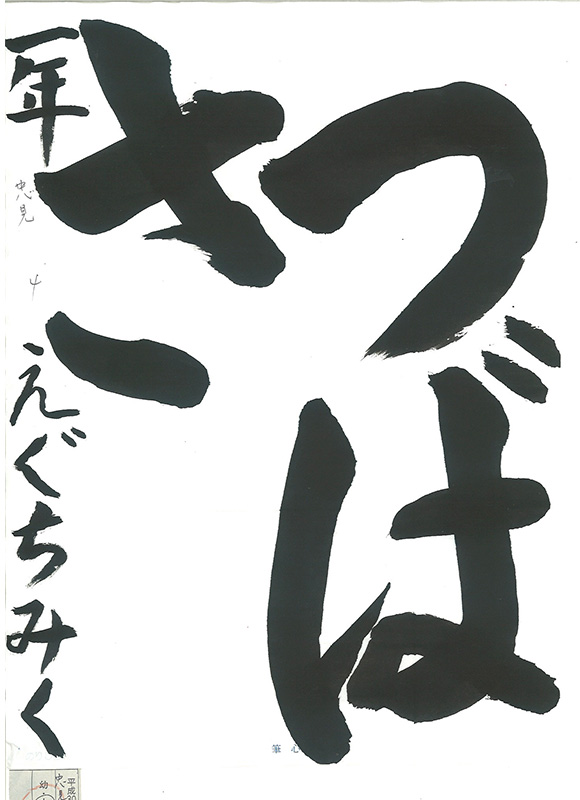 つば
さ
一年
えぐちみく
忠見
4
筆心
平成30
忠見
幼